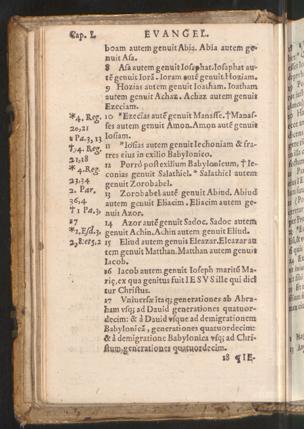 Cap. I. EVANGEL.
boam autem genuit Abia. Abia autem ge-
nuit Asa.
8 Asa autem genuit Iosaphat. Iosaphat au-
tẽ genuit Iorã. Ioram autẽ genuit Hoziam.
9 Hozias autem genuit Ioatham. Ioatham
autem genuit Achaz. Achaz autem genuit
Ezeciam.
*4. Reg. 10 *Ezecias autẽ genuit Manasse. †Manas-
20,21 ses autem genuit Amon. Amon autẽ genuit
1 Pa.3, 13 Iosiam.
†.4. Reg. 11 *Iosias autem genuit Iechoniam & fra-
21,18 tres eius in exilio Babylonico.
*4.Reg. 12 Porrò post exilium Babylonicum, † Ie-
23.34 conias genuit Salathiel. * Salathiel autem
2. Par. genuit Zorobabel.
36,4 13 Zorobabel autẽ genuit Abiud. Abiud
† 1 Pa.3. autem genuit Eliacim. Eliacim autem ge-
17 nuit Azor.
*1.Esd.3. 14 Azor autẽ genuit Sadoc. Sadoc autem
2,8:et5,2 genuit Achin. Achin autem genuit Eliud.
15 Eliud autem genuit Eleazar. Eleazar au
tem genuit Matthan. Matthan autem genuit
Iacob.
16 Iacob autem genuit Ioseph maritũ Ma-
rię, ex qua genitus fuit IESVS ille qui dici
tur Christus.
17 Vniuersæ itaq; generationes ab Abra-
ham vsq; ad Dauid generationes quatuor-
decim: & à Dauid vsque ad demigrationem
Babylonicã, generationes quatuordecim:
& à demigratione Babylonica vsq; ad Chri-
stum, generationes quatuordecim.
18 ¶IE-